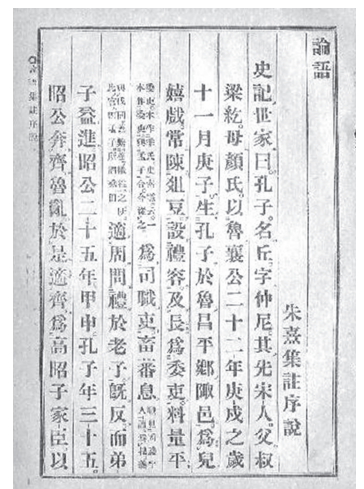 論語
朱熹集註序說
史記世家曰。孔子。名丘。字仲尼。其先宋人。父叔
梁紇。母顏氏。以魯襄公二十二年庚戌之歲
十一月庚子。生。孔子於魯昌平鄉陬邑。爲兒
嬉戲。常陳俎豆。設禮容及長。爲委吏。料量平
委吏本作季氏史索隱云一
本作委吏與孟子合今從之
爲司職吏。畜蕃息
適周問禮於老子旣反。而弟
子益進。昭公二十五年甲申。孔子年三十五。
昭公奔齊。魯亂於是適齊。爲高昭子家臣以
集註序說